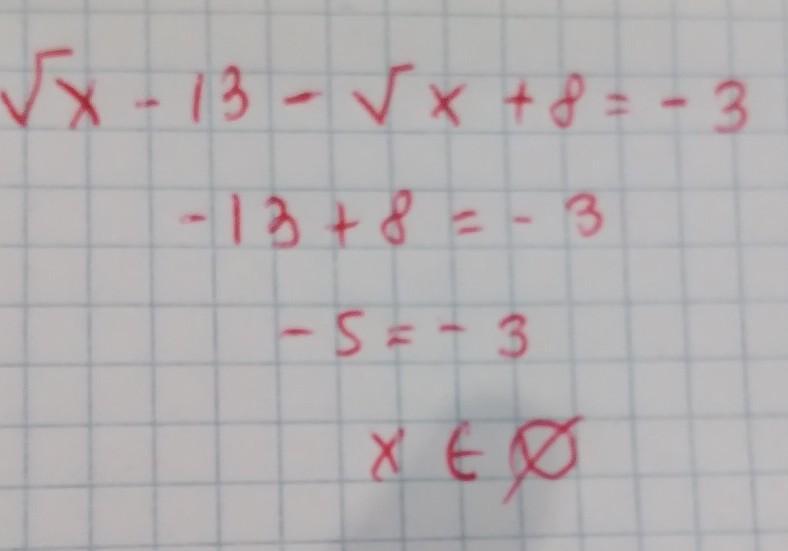 √x - 13 - √x + 8 = - 3
- 13 + 8 = - 3
- 5 = - 3
x ∈ ∅